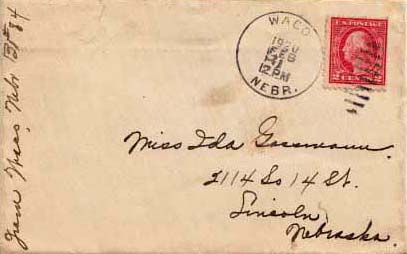 WACO
1920
FEB
12 PM
NEBR.
U.S. POSTAGE
2 CENTS 2
Miss Ida Gossmann.
2114 So 14 St.
Lincoln,
Nebraska.
from Nebr